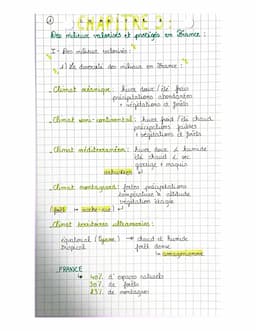 ①
CHAPITRE 3 :
Des milieux valorisés et protégés en France :
I - Des milieux valorisés :
1) La diversité des milieux en France :
. Climat océanique : hiver doux / été frais
précipitations abondantes
+ végétations et forêts
. Climat semi-continental : hiver froid / été chaud
précipitations faibles
+ végétations et forêts
. Climat méditerranéen : hiver doux & humide
été chaud & sec
garrigue + maquis
. Climat montagnard : fortes précipitations
température ↓ altitude
végétation étagée
forêt → roche-nue
. Climat territoires ultramarins :
équatorial (Guyane) → chaud et humide
tropical forêt dense
↳ amazonienne
FRANCE
↳ 40% d'espaces naturels
30% de forêts
23% de montagnes